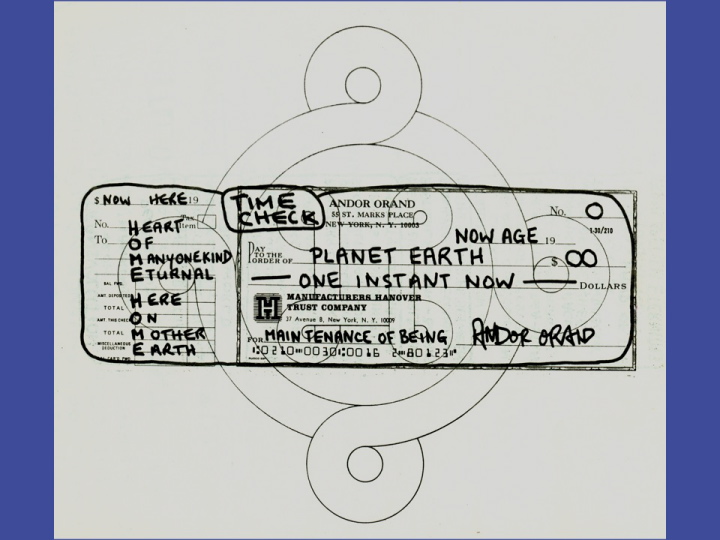 $ NOW HERE 19
No. HEART Tax Item
To OF
MANYONEKIND
ETURNAL
BAL. FWD.
AMT. DEPOSITED HERE
TOTAL
AMT. THIS CHECK ON
TOTAL MOTHER
MISCELLANEOUS DEDUCTION EARTH
TIME
CHECK
ANDOR ORAND
55 ST. MARKS PLACE
NEW YORK, N. Y. 10003
No. 0
1-30/210
NOW AGE 19
PAY TO THE ORDER OF PLANET EARTH $ OO
ONE INSTANT NOW DOLLARS
MANUFACTURERS HANOVER
TRUST COMPANY
37 Avenue B, New York, N. Y. 10009
FOR MAINTENANCE OF BEING ANDOR ORAND
0210 0030 0016 2 80123